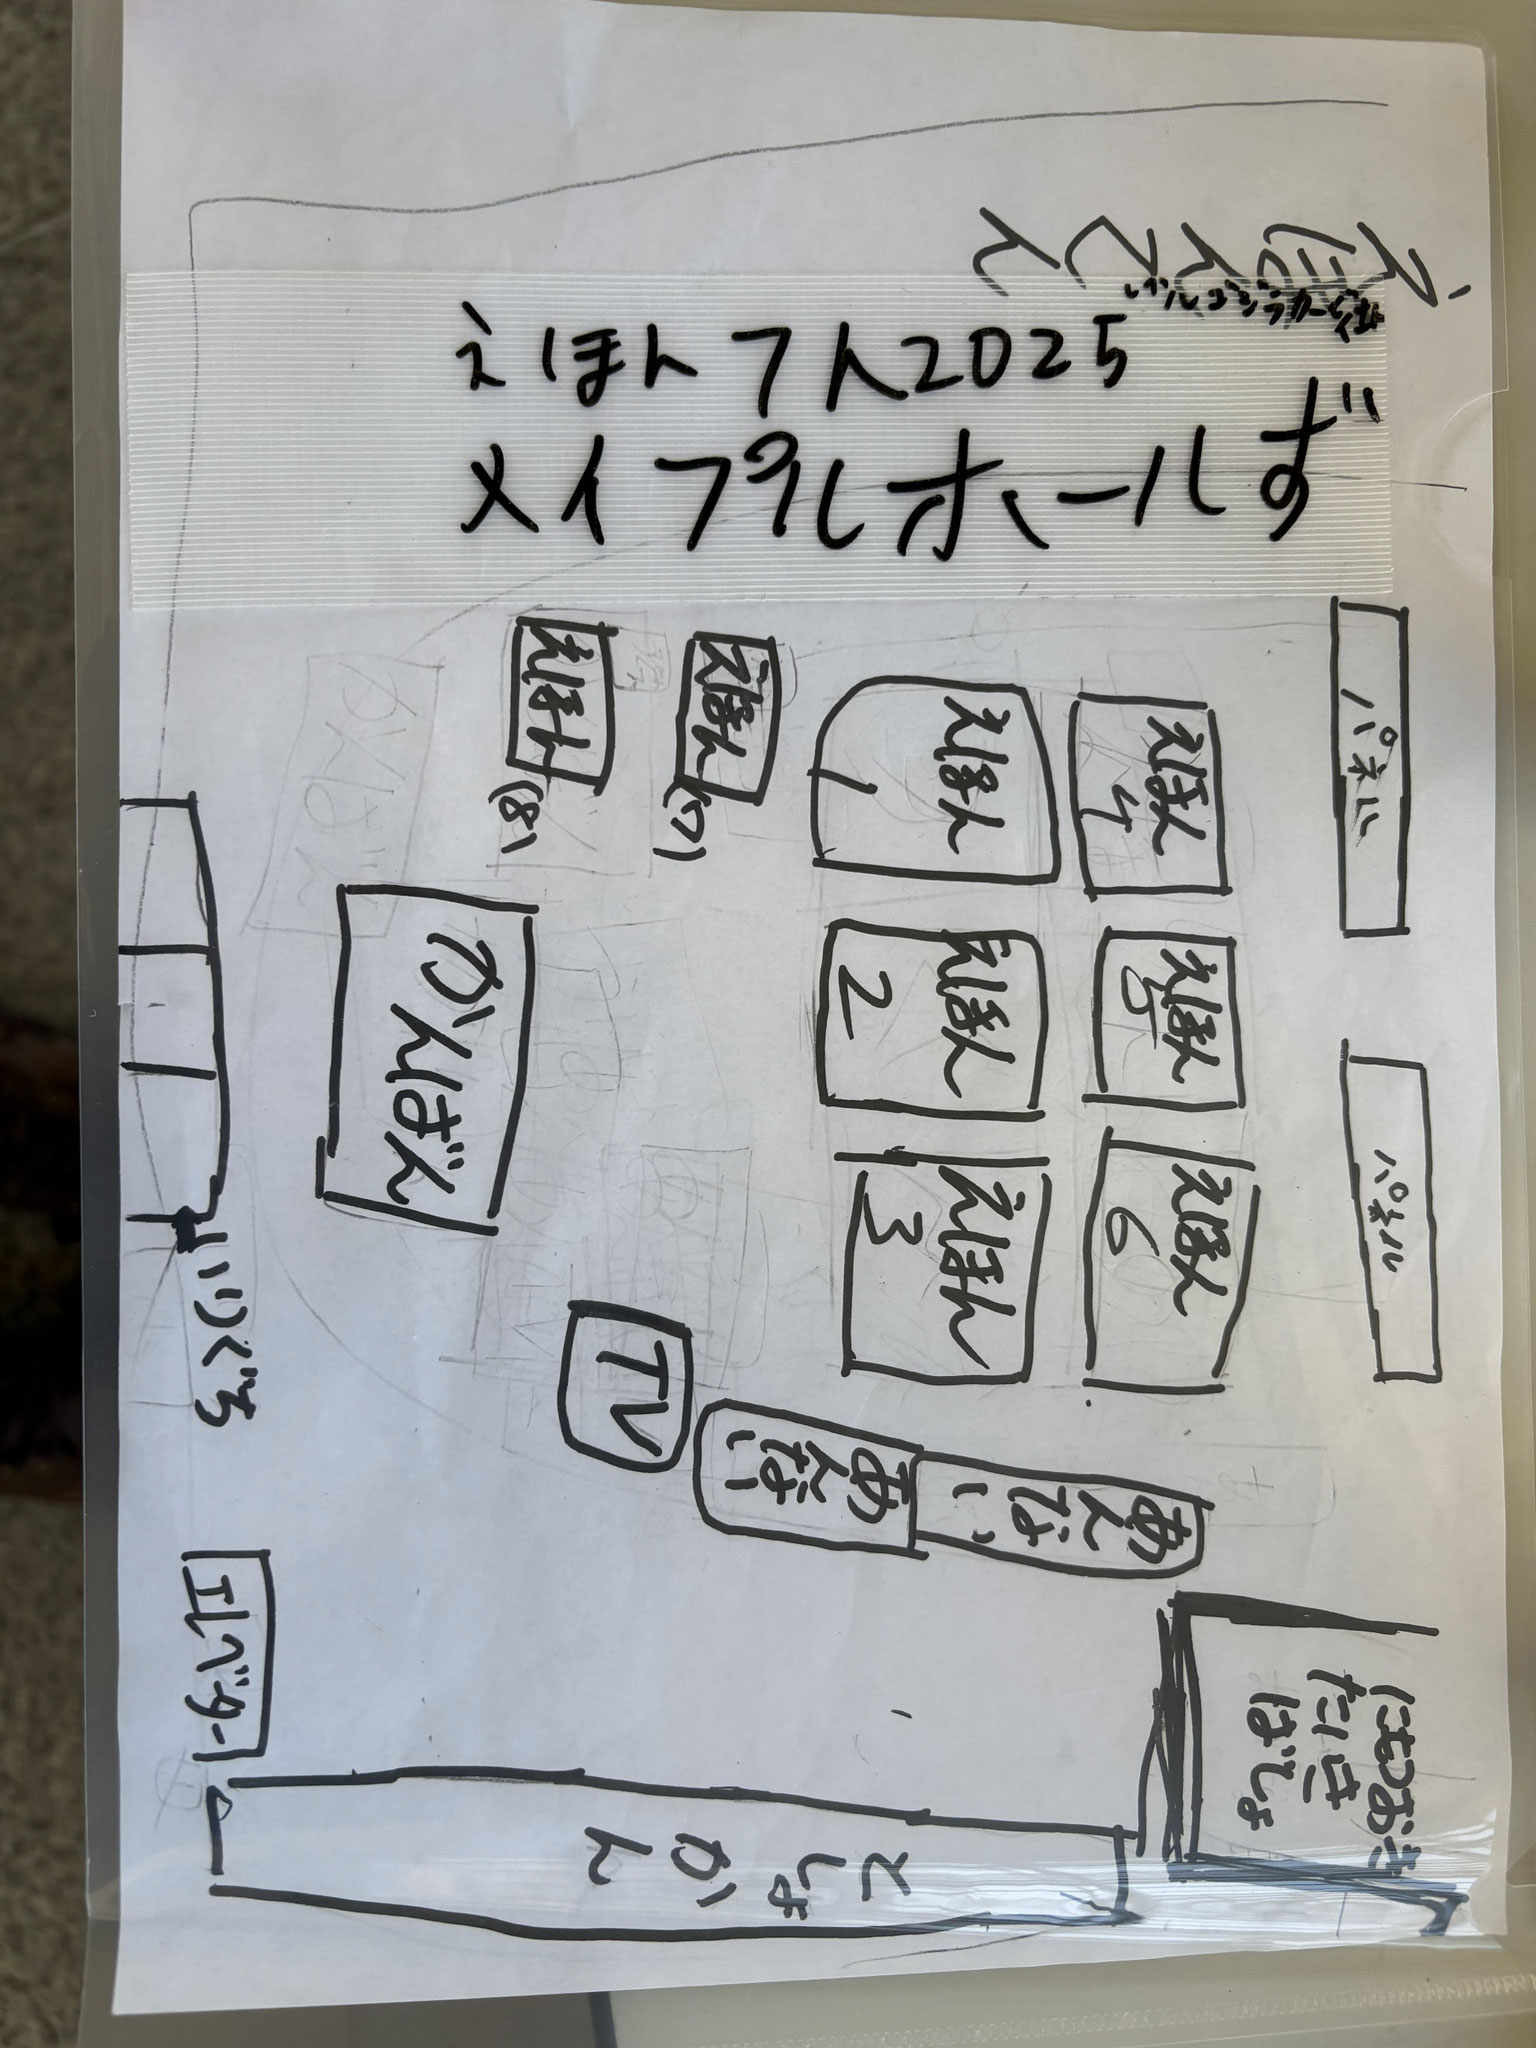 えほんてん2025
メイプルホールず
えほんてん
パネル
パネル
えほん
4
えほん
5
えほん
6
えほん
1
えほん
2
えほん
3
えほん
(7)
えほん
(8)
かんばん
TV
あんない
あんない
いりぐち
エレベーター
にもつおき
たいき
ばしょ
としょかん